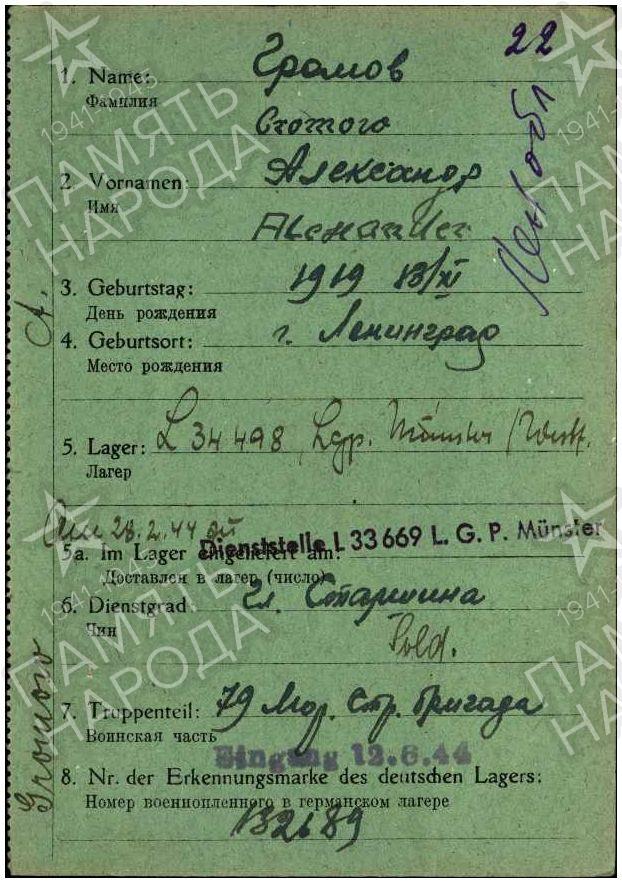 22
Лен обл
1. Name: Громов
Фамилия
2. Vornamen: Александр
Имя
Alexander
3. Geburtstag: 1919 13/XI
День рождения
4. Geburtsort: г. Ленинград
Место рождения
5. Lager: L 34 498, Lgp. Münster / Westf.
Лагер
28.2.44
Dienststelle L 33669 L. G. P. Münster
5a. Im Lager eingeliefert am:
Доставлен в лагер (число)
6. Dienstgrad: Гл. Старшина
Чин
Sold.
7. Truppenteil: 79 Мор. Стр. бригада
Воинская часть
Eingang 12.6.44
8. Nr. der Erkennungsmarke des deutschen Lagers:
Номер военнопленного в германском лагере
132689
A.
1941-1945
ПАМЯТЬ
НАРОДА